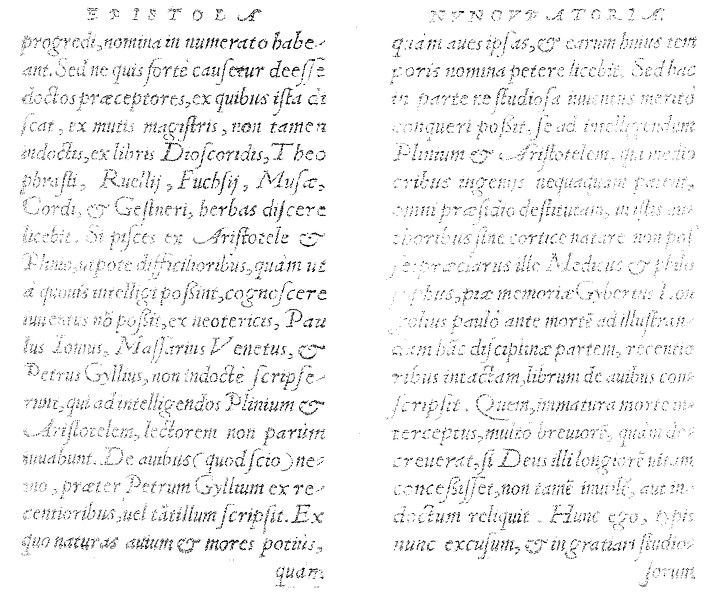 EPISTOLA
progredi, nomina in numerato habe-
ant. Sed ne quis fortè causetur deesse
doctos præceptores, ex quibus ista di
scat, ex mutis magistris, non tamen
indoctis, ex libris Dioscoridis, Theo
phrasti, Ruellij, Fuchsij, Musæ,
Cordi, & Gesneri, herbas discere
licebit. Si pisces ex Aristotele &
Plinio, utpote difficilioribus, quàm ut
à quouis intelligi possint, cognoscere
iuuentus nõ possit, ex neotericis, Pau
lus Iouius, Massarius Venetus, &
Petrus Gyllius, non indoctè scripse-
runt, qui ad intelligendos Plinium &
Aristotelem, lectorem non parùm
iuuabunt. De auibus (quod scio) ne-
mo, præter Petrum Gyllium ex re-
centioribus, uel tãtillum scripsit. Ex
quo naturas auium & mores potius,
quàm
NVNCVPATORIA.
quàm aues ipsas, & earum huius tem
poris nomina petere licebit. Sed hac
in parte ne studiosa iuuentus meritò
conqueri possit, se ad intelligendum
Plinium & Aristotelem, qui medio
cribus ingenijs nequaquam patent,
omni præsidio destitutam, in istis au-
thoribus sine cortice natare non pos
se: præclarus ille Medicus & philo
sophus, piæ memoriæ Gybertus Lon
golius paulò ante mortẽ ad illustran-
dam hãc disciplinæ partem, recentio
ribus intactam, librum de auibus con-
scripsit. Quem, immatura morte in-
terceptus, multò breuiorẽ, quàm de-
creuerat, si Deus illi longiorẽ uitam
concessisset, non tamẽ inutilẽ, aut in-
doctum reliquit. Hunc ego, typis
nunc excusum, & in gratiam studio-
sorum